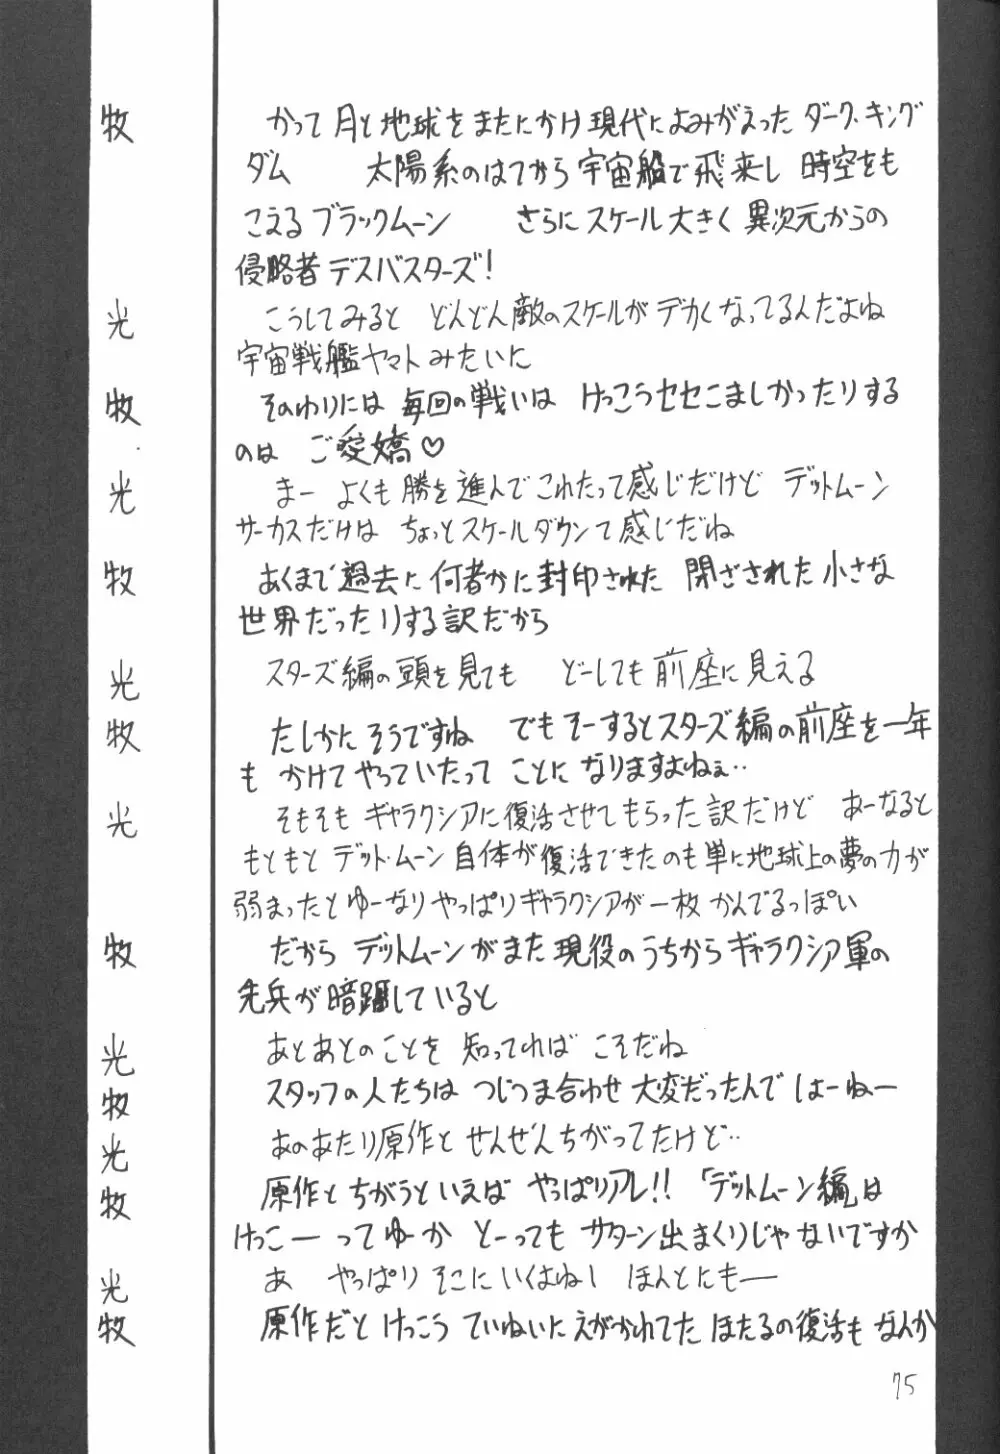 牧 かって月と地球をまたにかけ現代によみがえったダーク、キング
ダム 太陽系のはてから宇宙船で飛来し 時空をも
こえるブラックムーン さらにスケール大きく異次元からの
侵略者デスバスターズ!
光 こうしてみると どんどん敵のスケールがデカくなってるんだよね
宇宙戦艦ヤマトみたいに
牧 そのわりには 毎回の戦いは けっこうセセこましかったりする
のは ご愛嬌♡
光 まー よくも勝を進んでこれたって感じだけど デットムーン
サーカスだけは ちょっとスケールダウンて感じだね
牧 あくまで過去に何者かに封印された 閉ざされた小さな
世界だったりする訳だから
光 スターズ編の頭を見ても どーしても前座に見える
牧 たしかにそうですね でもそーするとスターズ編の前座を一年
も かけてやっていたって ことに なりますよねぇ‥
光 そもそも ギャラクシアに復活させてもらった訳だけど あーなると
もともと デット・ムーン 自体が復活できたのも単に地球上の夢の力が
弱まったとゆーなりやっぱりギャラクシアが一枚かんでるっぽい
牧 だから デットムーンがまた現役のうちからギャラクシア軍の
先兵が暗躍していると
光 あとあとのことを 知ってれば こそだね
牧 スタッフの人たちは つじつま合わせ大変だったんでしょーねー
光 あのあたり原作と せんぜんちがってたけど‥
牧 原作とちがうといえば やっぱりアレ!!「デットムーン編」は
けっこーってゆーか とーっても サターン出まくりじゃないですか
光 あ やっぱり そこにいくはねし ほんとにもー
牧 原作だと けっこう ていねいにえがかれてた ほたるの復活も なんか
75